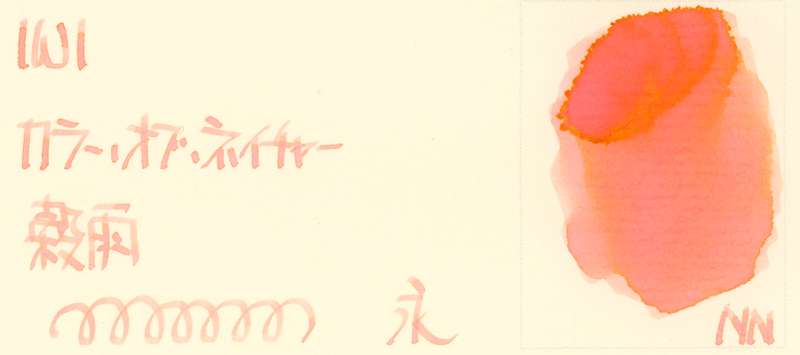 IWI
カラー・オブ・ネイチャー
穀雨
永
NN